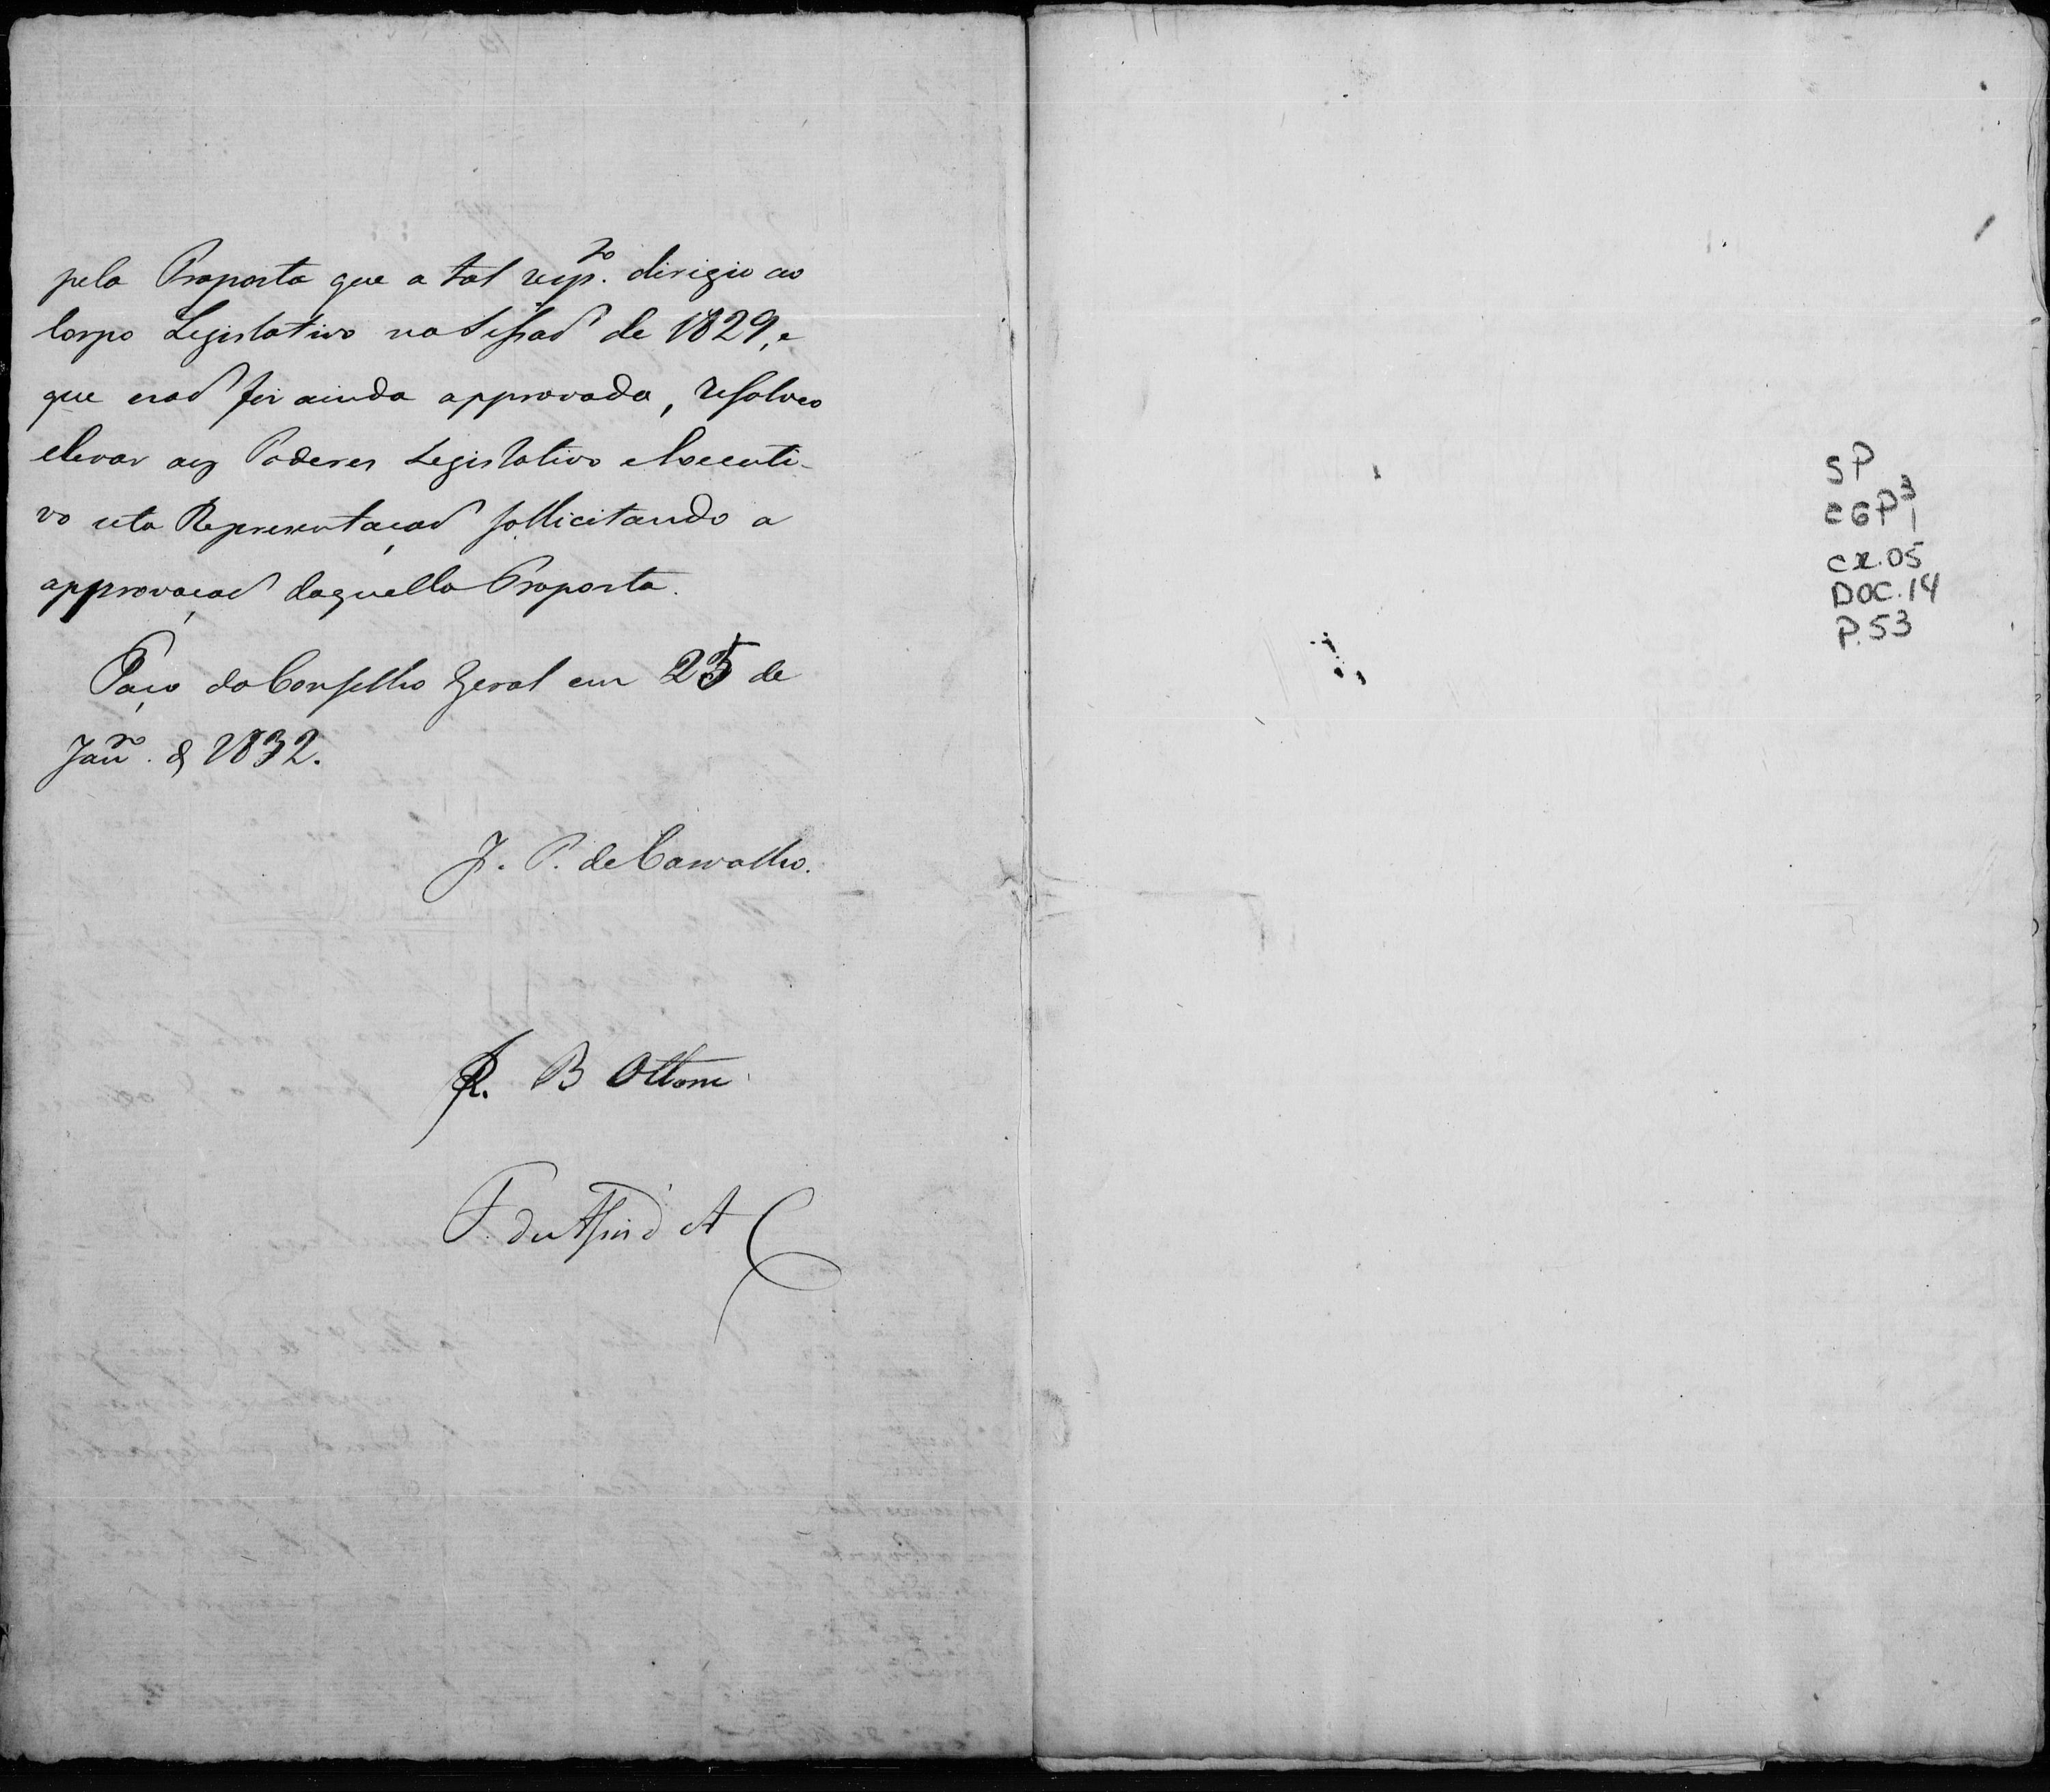 pela Proposta que a tal resp.to dirigio ao
Corpo Legislativo na Sessaõ de 1829, e
que naõ foi ainda approvada, resolveo
elevar aos Poderes Legislativo e Executi-
vo esta Representaçaõ sollicitando a
approvaçaõ daquella Proposta.
Paço do Conselho Geral em 25 de
Janr.o de 1832.
J. P. de Carvalho.
B Ottoni
SP
CGP 3
1
cx.05
DOC.14
P.53